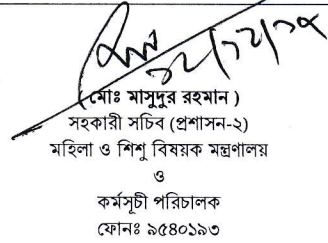 ১২/১২/১৯
(মোঃ মাসুদুর রহমান )
সহকারী সচিব (প্রশাসন-২)
মহিলা ও শিশু বিষয়ক মন্ত্রণালয়
ও
কর্মসূচী পরিচালক
ফোনঃ ৯৫৪০১৯৩